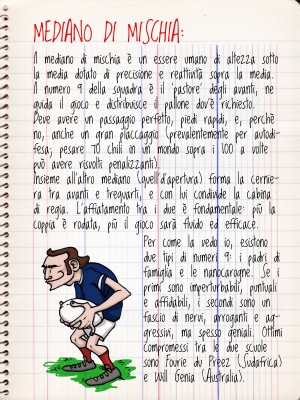 MEDIANO DI MISCHIA:
Il mediano di mischia è un essere umano di altezza sotto
la media dotato di precisione e reattività sopra la media.
Il numero 9 della squadra è il 'pastore' degli avanti, ne
guida il gioco e distribuisce il pallone dov'è richiesto.
Deve avere un passaggio perfetto, piedi rapidi, e, perchè
no, anche un gran placcaggio (prevalentemente per autodi-
fesa; pesare 70 chili in un mondo sopra i 100 a volte
può avere risvolti penalizzanti).
Insieme all'altro mediano (quell'd'apertura) forma la cernie-
ra tra avanti e trequarti, e con lui condivide la cabina
di regia. L'affiatamento tra i due è fondamentale: più la
coppia è rodata, più il gioco sarà fluido ed efficace.
Per come la vedo io, esistono
due tipi di numeri 9: i padri di
famiglia e le nanocarogne. Se i
primi sono imperturbabili, puntuali
e affidabili, i secondi sono un
fascio di nervi, arroganti e ag-
gressivi, ma spesso geniali. Ottimi
compromessi tra le due scuole
sono Fourie du Preez (Sudafrica)
e Will Genia (Australia).